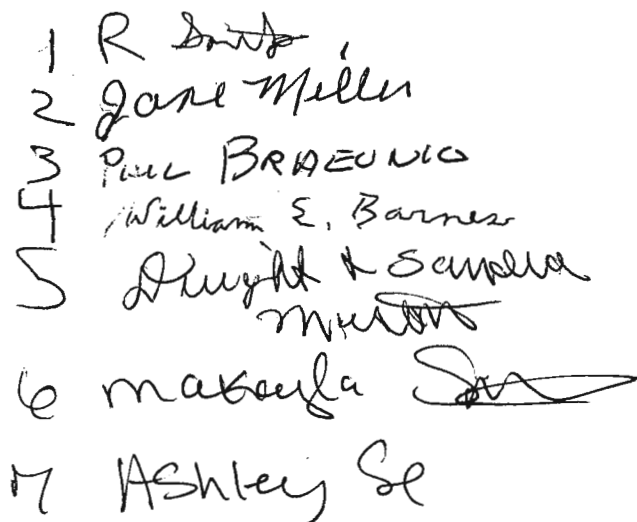 1 R Smith
2 Jane Miller
3 Paul
4 William E. Barnes
5 Dwight & Sandra
6 Makayla
7 Ashley Se